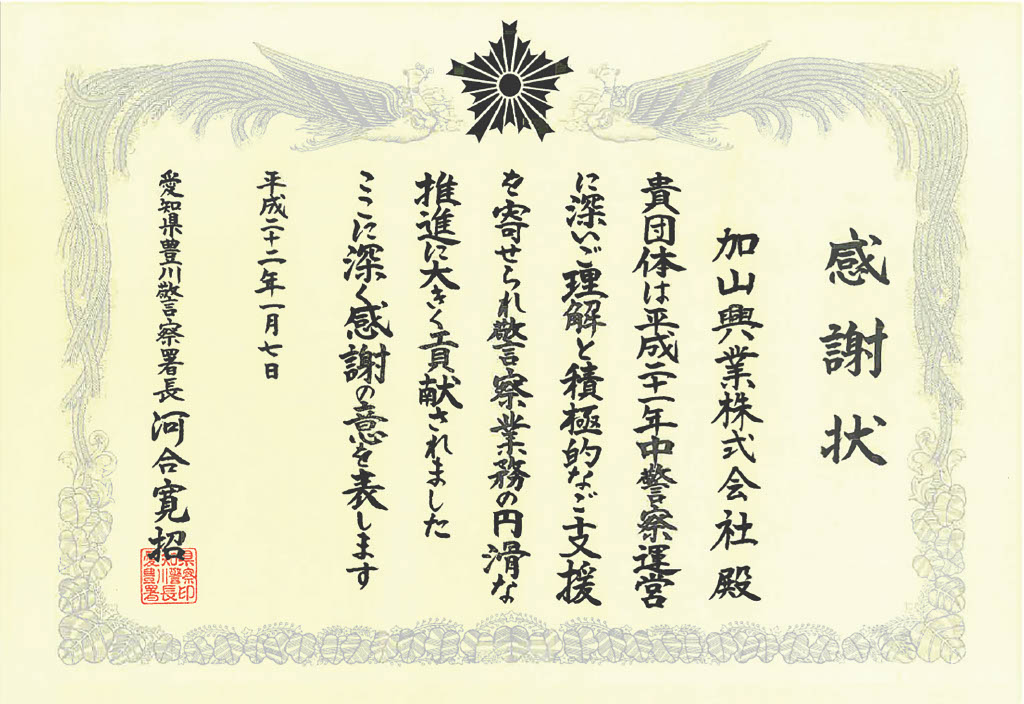 感謝状
加山興業株式会社殿
貴団体は平成二十一年中警察運営
に深いご理解と積極的なご支援
を寄せられ警察業務の円滑な
推進に大きく貢献されました
ここに深く感謝の意を表します
平成二十二年一月七日
愛知県豊川警察署長 河合寛招
愛知県豊川警察署長印